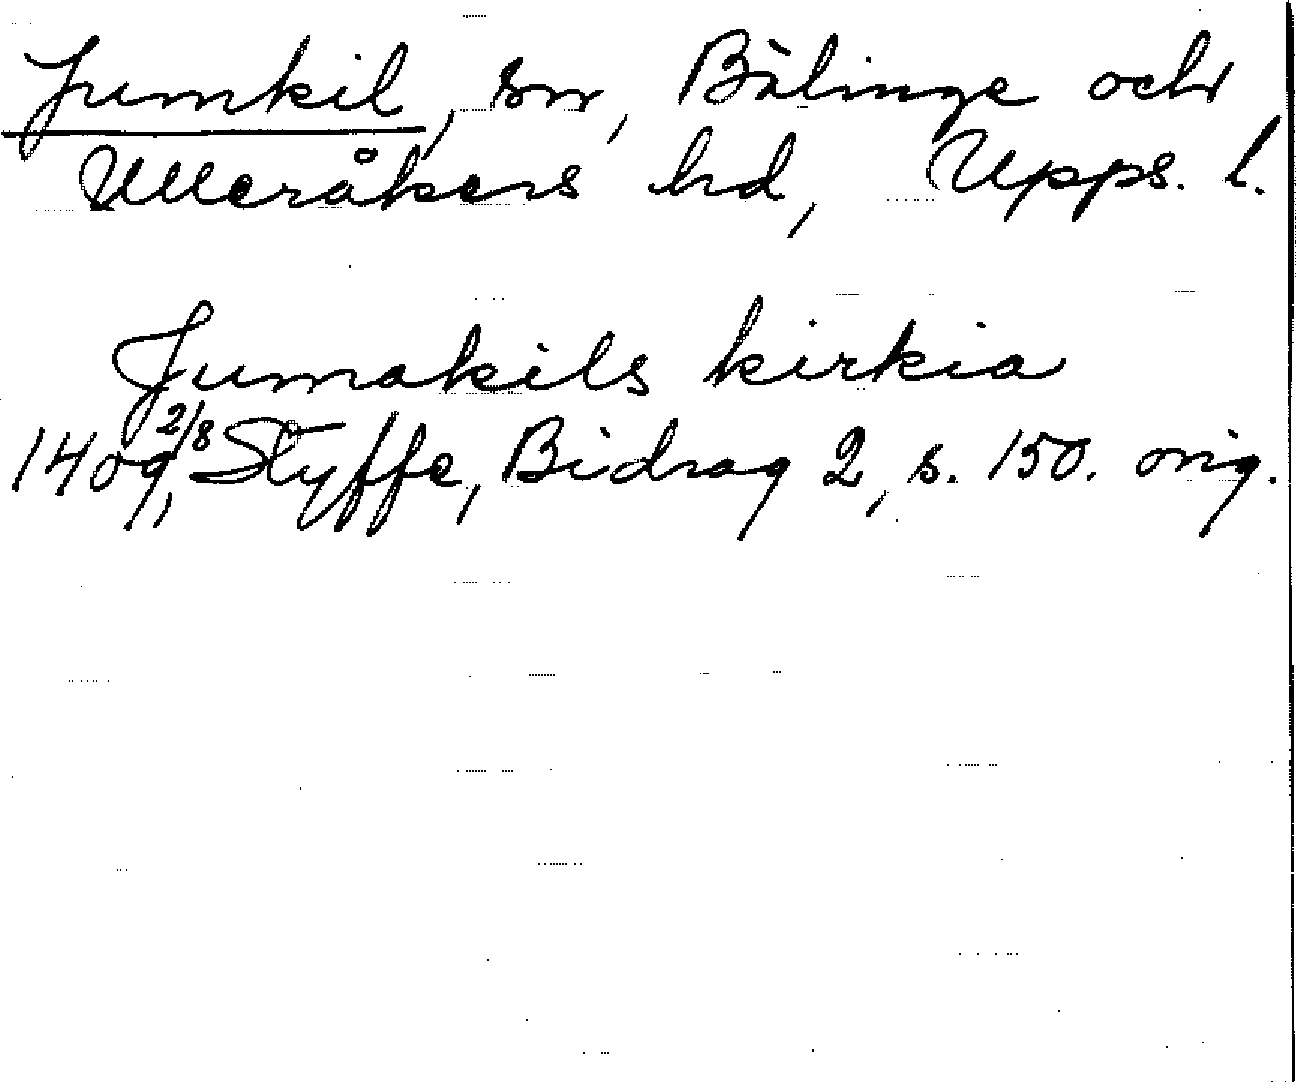 Jumkil, sn, Bälinge och
Ulleråkers hd, Upps. l.
Jumakils kirkia
1409 2/8, Styffe, Bidrag 2, s. 150. orig.